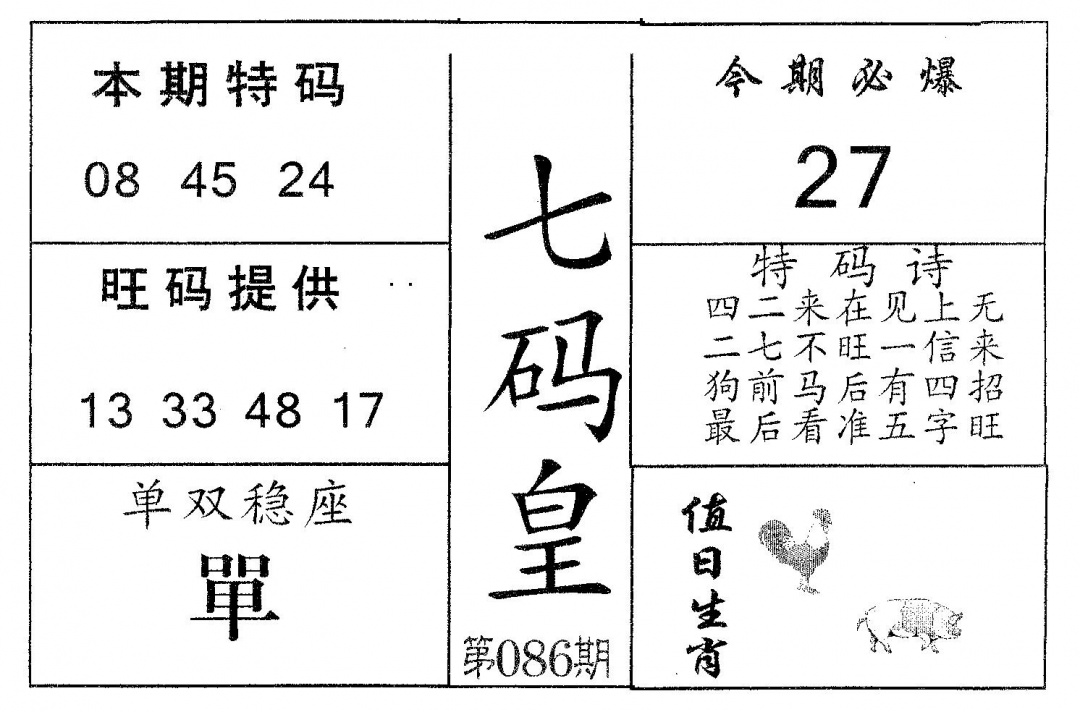 本期特码
08 45 24
旺码提供
13 33 48 17
单双稳座
單
七码皇
第086期
今期必爆
27
特码诗
四二来在见上无
二七不旺一信来
狗前马后有四招
最后看准五字旺
值日生肖